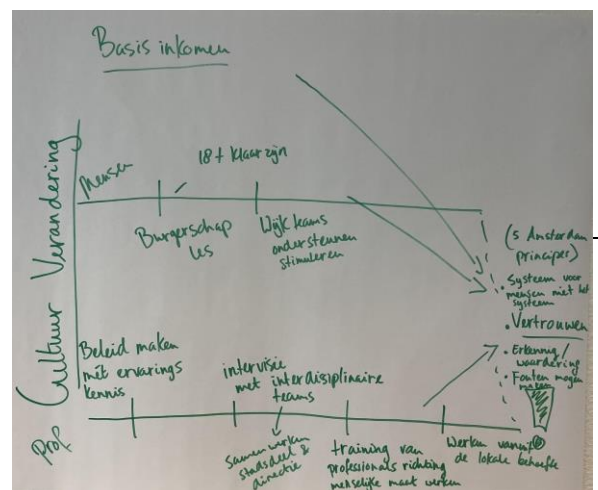 Basis inkomen
Cultuur Verandering
Mensen
18+ klaar zijn
Burgerschap
les
Wijkteams
ondersteunen
stimuleren
(5 Amsterdam
principes)
• Systeem voor
mensen niet het
systeem
• Vertrouwen
• Erkenning/
waardering
• Fouten mogen
maken
Beleid maken
mét ervarings
kennis
intervisie
met interdisiplinaire
teams
Prop
samenwerken
stadsdeel &
directie
training van
professionals richting
menselijke maat werken
Werken vanuit
de lokale behoefte